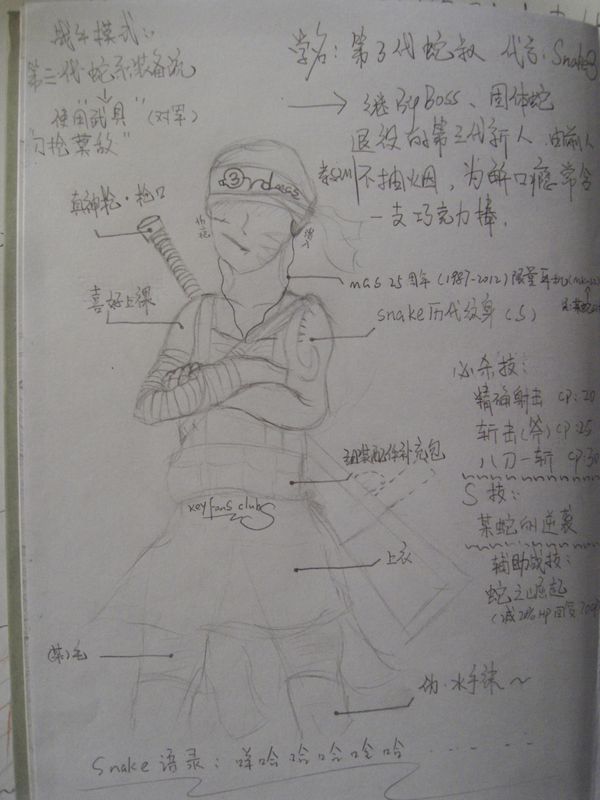 战斗模式:
第三代蛇系装备流
使用"武具"(对军)
"刀枪菜敌"
学名:第3代蛇叔 代言:Snake3
→ 继Big Boss、固体蛇
退役的第三代新人.由前人
不抽烟,为解口瘾常含
一支巧克力棒.
d3ndless
真神轮·枪口
喜好上课
MGS 25周年(1987-2012)限量耳机
snake历代纹身(S)
必杀技:
精确射击 CP:20
斩击(斧) CP:25
八刀一斩 CP:30
组装配件补充包
key fans club
S技:
某蛇的逆袭
辅助战技:
蛇之崛起
(减20%HP回复
上衣
(禁)毛
伪·水手袜~
Snake 语录:咩哈哈哈哈哈......